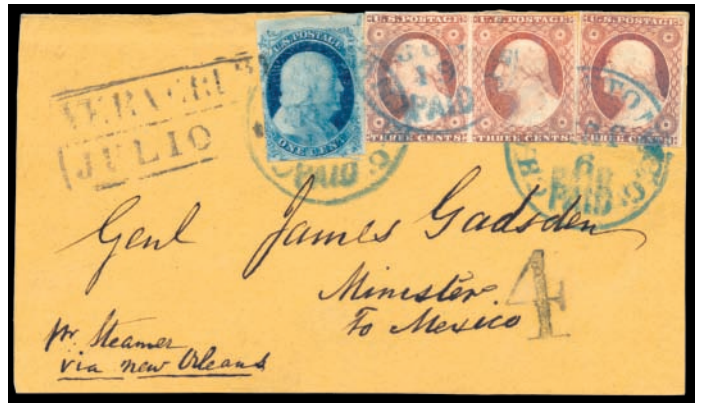 U.S. POSTAGE
ONE CENT
U.S. POSTAGE U.S. POSTAGE U.S. POSTAGE
THREE CENTS THREE CENTS THREE CENTS
JULIO
PAID
19
PAID
6
PAID
Genl James Gadsden
Minister
To Mexico
4
pr. Steamer
via new Orleans